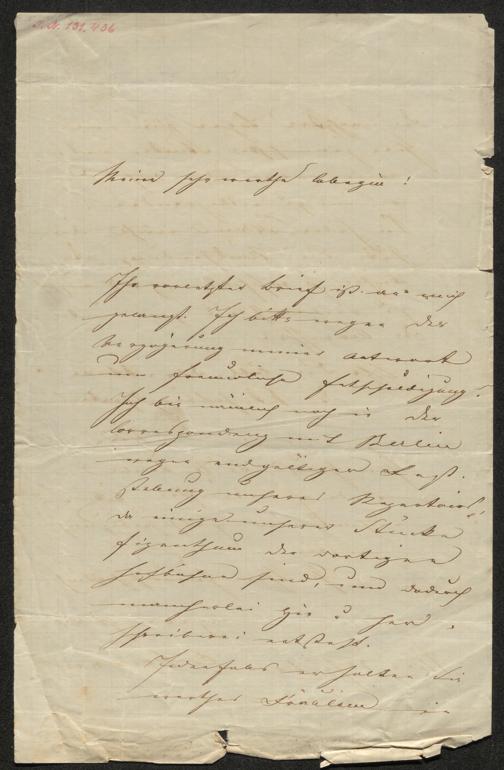 J. N. 131.436
Meine sehr werthe Collegin!
Ihr vorletzter Brief ist an mich
gelangt. Ich bitte wegen der
Verzögerung meiner Antwort
um freundliche Entschuldigung.
Ich bin nämlich noch in der
Correspondenz mit Berlin
wegen endgültiger Fest-
stellung unseres Repertoirs,
da einige unserer Stücke
Eigenthum der dortigen
Hofbühne sind, und dadurch
mancherlei Hin u Her-
schreiberei entsteht.
Jedenfalls erhalten Sie
werthes Fräulein in